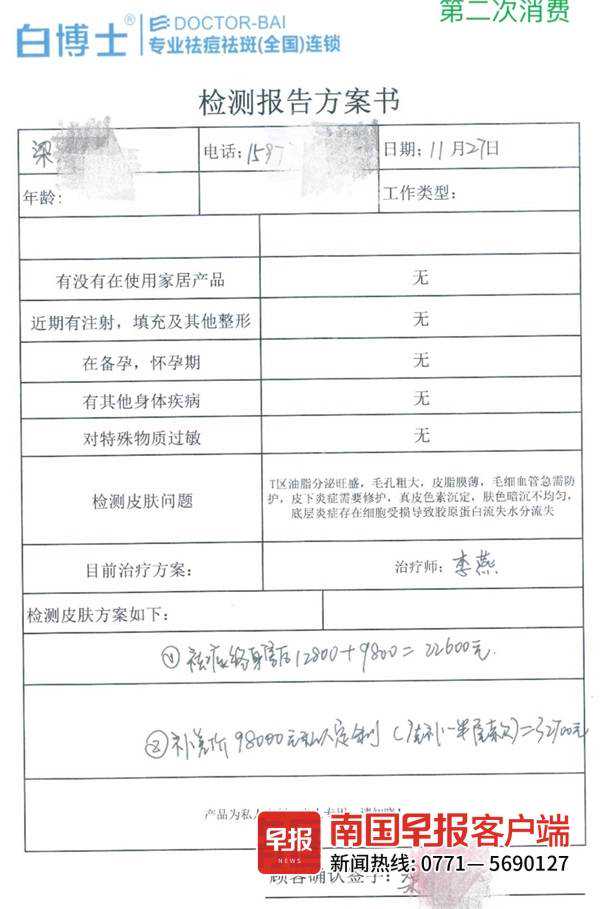 第二次消费
白博士® DOCTOR-BAI
专业祛痘祛斑(全国)连锁
检测报告方案书
梁 电话:159 日期:11月27日
年龄: 工作类型:
有没有在使用家居产品 无
近期有注射，填充及其他整形 无
在备孕，怀孕期 无
有其他身体疾病 无
对特殊物质过敏 无
检测皮肤问题
T区油脂分泌旺盛，毛孔粗大，皮脂膜薄，毛细血管急需防
护，皮下炎症需要修护，真皮色素沉定，肤色暗沉不均匀，
底层炎症存在细胞受损导致胶原蛋白流失水分流失
目前治疗方案: 治疗师: 李燕
检测皮肤方案如下:
① 祛痘终身售后12800+9800=22600元.
② 补差价98000元私人定制 (补一半尾款)=32700元
产品为私人
早报 NEWS 南国早报客户端
新闻热线: 0771—5690127
顾客确认签字: 梁